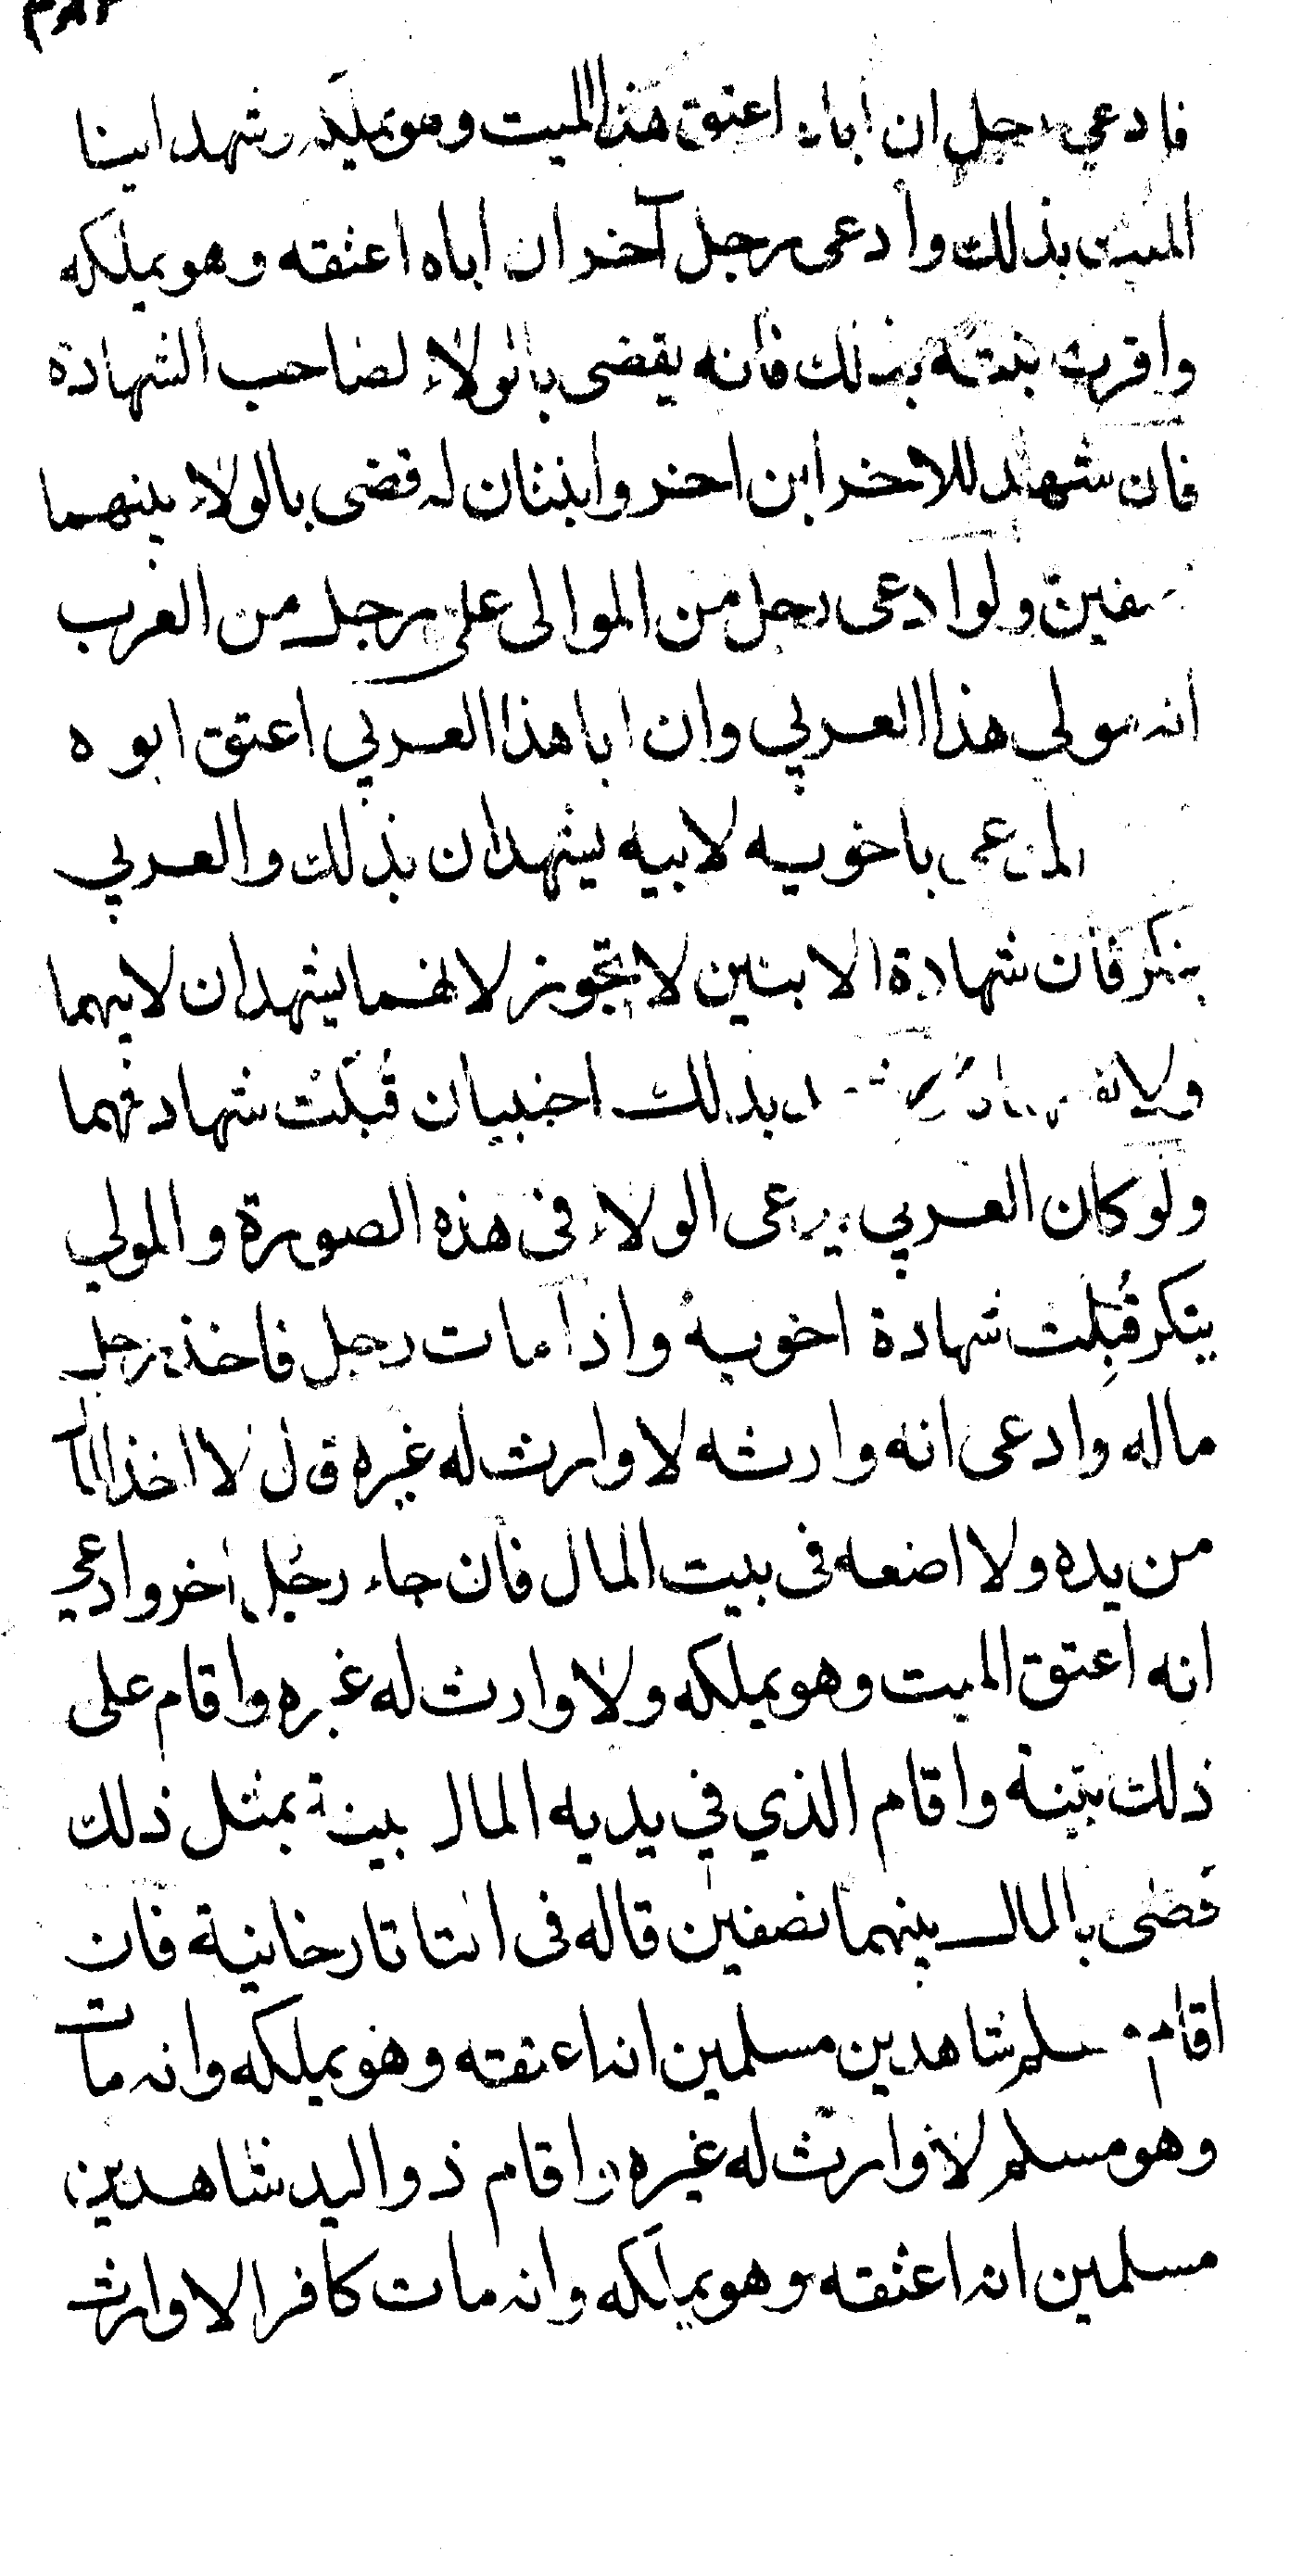 فادعى رجل ان اباه اعتق هذا الميت وهو يملكه وشهد ابنا
الميت بذلك وادعى رجل آخر ان اباه اعتقه وهو يملكه
واقرت بنته بذلك فانه يقضى بالولاء لصاحب الشهادة
فان شهد للاخر ابن اخر وابنتان له قضى بالولاء بينهما
نصفين ولو ادعى رجل من الموالى على رجل من العرب
انه مولى هذا العربي وان ابا هذا العربي اعتق ابوه
المدعى باخويه لابيه يشهدان بذلك والعربي
ينكر فان شهادة الابنين لا تجوز لانهما يشهدان لابيهما
ولا بذلك اجنبيان قُبلتْ شهادتهما
ولو كان العربي يدعى الولاء فى هذه الصورة والمولي
ينكر قُبِلتْ شهادة اخويه واذا مات رجل فاخذ رجل
ماله وادعى انه وارثه لا وارث له غيره قال لا اخذ المال
من يده ولا اضعه فى بيت المال فان جاء رجل اخر وادعى
انه اعتق الميت وهو يملكه ولا وارث له غيره واقام على
ذلك بينة واقام الذي في يديه المال بينة بمثل ذلك
قضى بالمال بينهما نصفين قاله فى التاتارخانية فان
اقام مسلم شاهدين مسلمين انه اعتقه وهو يملكه وانه مات
وهو مسلم لا وارث له غيره واقام ذو اليد شاهدين
مسلمين انه اعتقه وهو يملكه وانه مات كافرا لا وارث